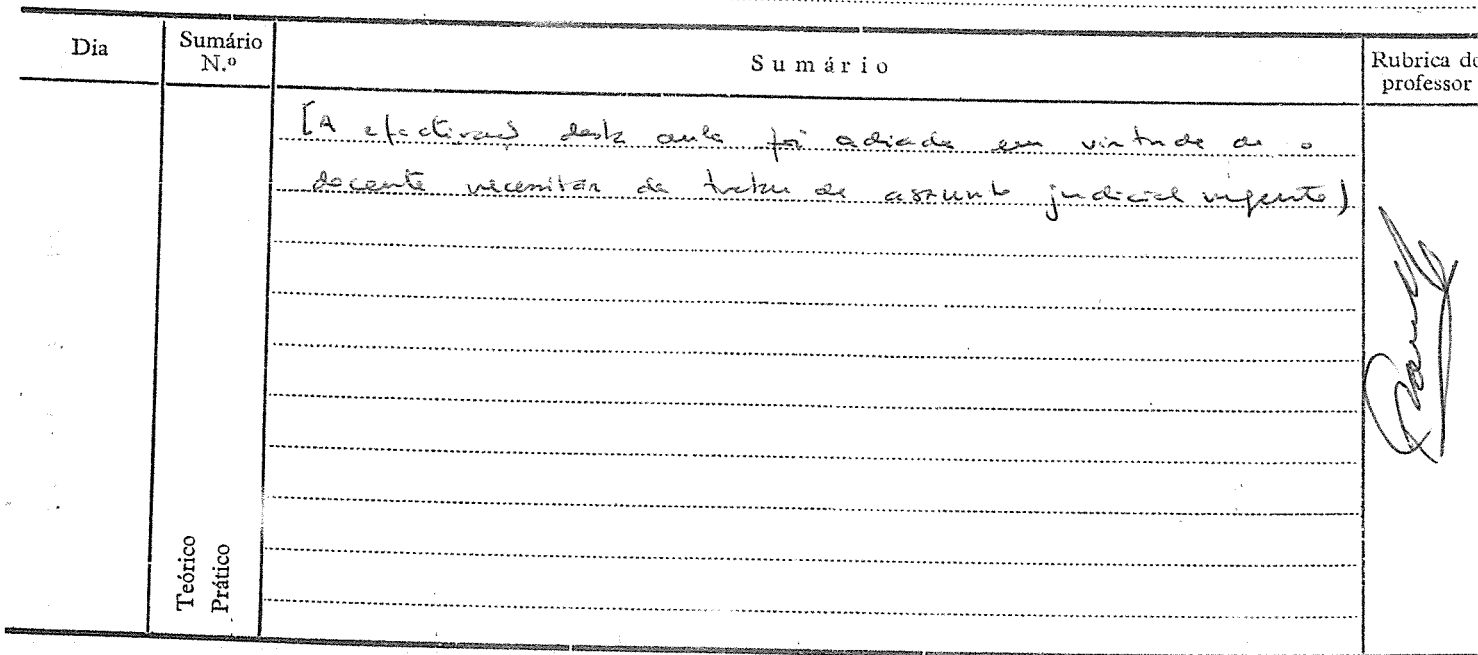 Dia
Sumário N.º
Sumário
Rubrica do professor
[A efectivação desta aula foi adiada em virtude de o
docente necessitar de tratar de assunto judicial urgente)
Teórico
Prático